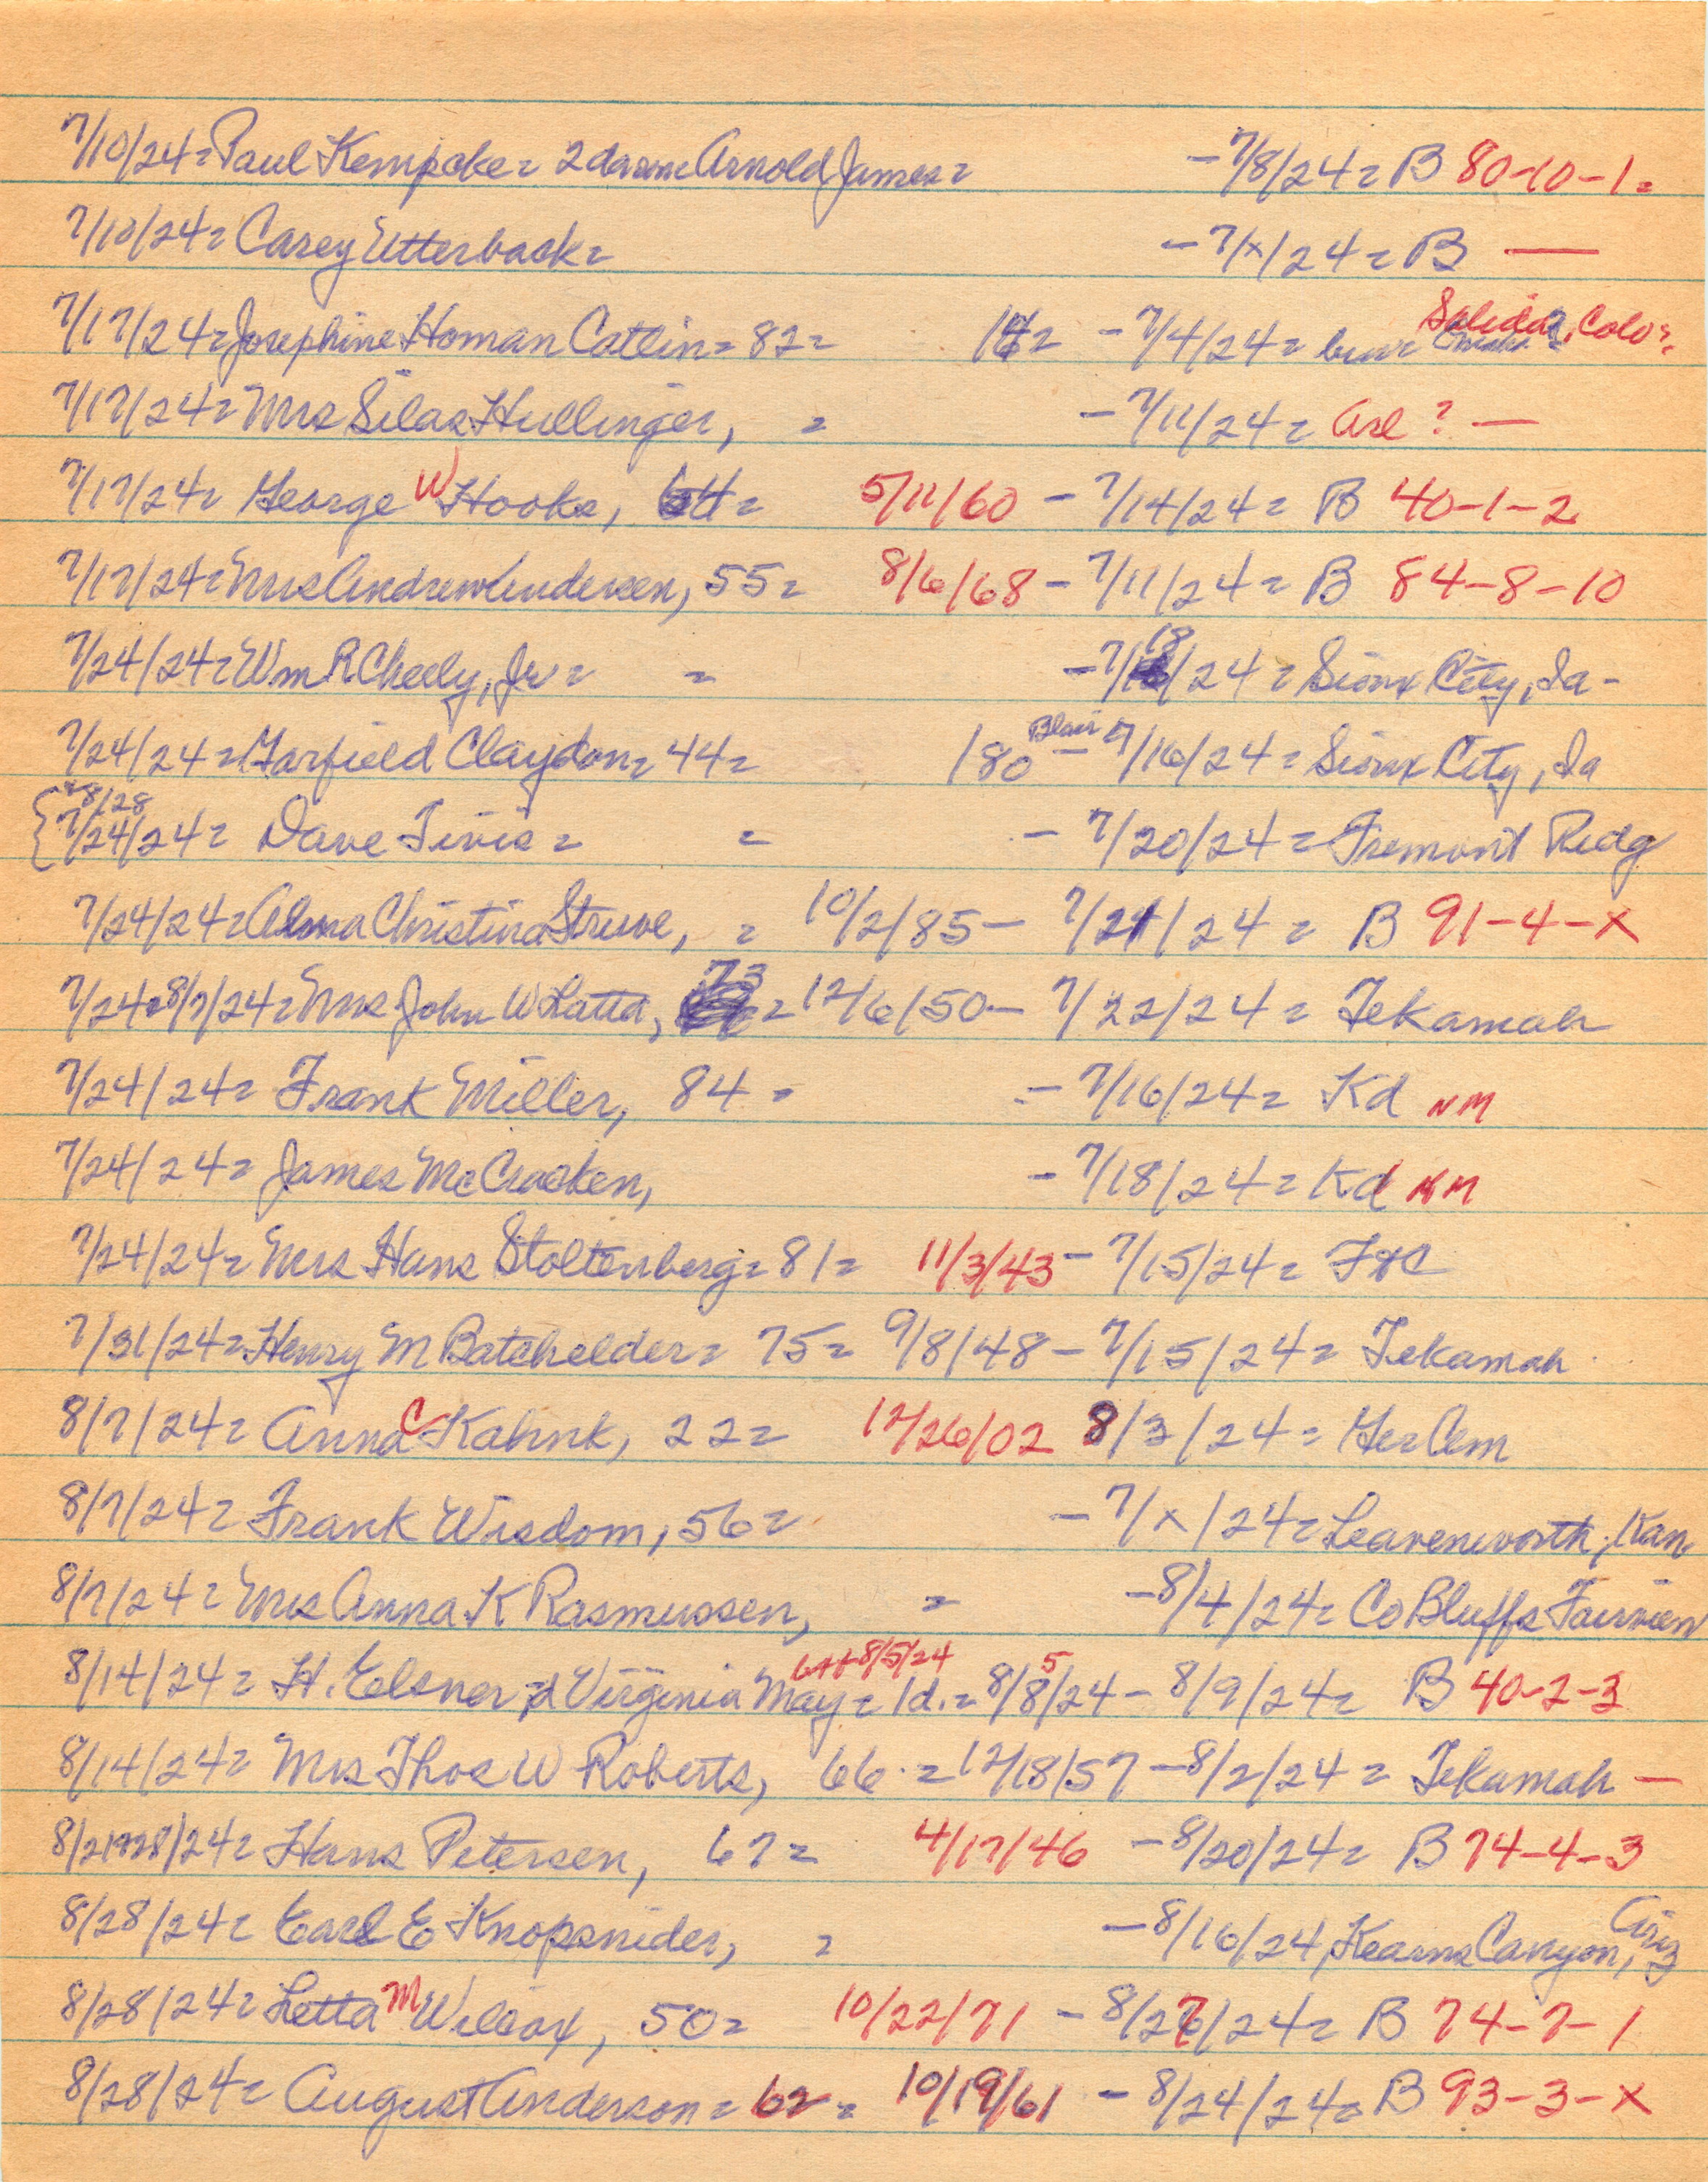 7/10/24= Paul Kempcke= 2da Arnold James= -7/8/24= B 80-10-1=
7/10/24= Carey Utterback= -7/x/24= B —
7/17/24= Josephine Homan Catlin= 82= -7/4/24= Salida, Colo=
7/17/24= Mrs Silas Hullinger, = -7/11/24= Arl ? —
7/17/24= George W Hooks, 64= 5/11/60 - 7/14/24= B 40-1-2
7/17/24= Mrs Andrew Andersen, 55= 8/6/68 - 7/11/24= B 84-8-10
7/24/24= Wm R Cheely, Jr= = -7/18/24= Sioux City, Ia -
7/24/24= Garfield Claydon= 44= 180 Blair - 7/16/24= Sioux City, Ia
8/28
{7/24/24= Dave Tivis= = - 7/20/24= Fremont Ridg
7/24/24= Alma Christina Struve, = 10/2/85 - 7/21/24= B 91-4-x
7/24=8/7/24= Mrs John W Latta, 73= 12/6/50 - 7/22/24= Tekamah
7/24/24= Frank Miller, 84= - 7/16/24= Kd NM
7/24/24= James McCracken, - 7/18/24= Kd NM
7/24/24= Mrs Hans Stoltenberg= 81= 11/3/43 - 7/15/24= FtC
7/31/24= Henry M Batchelder= 75= 9/8/48 - 7/15/24= Tekamah
8/7/24= Anna C Kahnk, 22= 12/26/02 8/3/24= Ger Cem
8/7/24= Frank Wisdom, 56= - 7/x/24= Leavenworth, Kan
8/7/24= Mrs Anna K Rasmussen, = -8/4/24= Co Bluffs Fairview
8/14/24= H. Elsner =d Virginia May= 1d.= 8/5/24 - 8/9/24= B 40-2-3
8/14/24= Mrs Thos W Roberts, 66= 12/18/57 - 8/2/24= Tekamah —
8/21=28/24= Hans Petersen, 67= 4/17/46 - 8/20/24= B 74-4-3
8/28/24= Earl E Knopsnider, = - 8/16/24, Kearns Canyon, Ariz
8/28/24= Letta M Wilcox, 50= 10/22/71 - 8/27/24= B 74-7-1
8/28/24= August Anderson= 62= 10/19/61 - 8/24/24= B 93-3-x